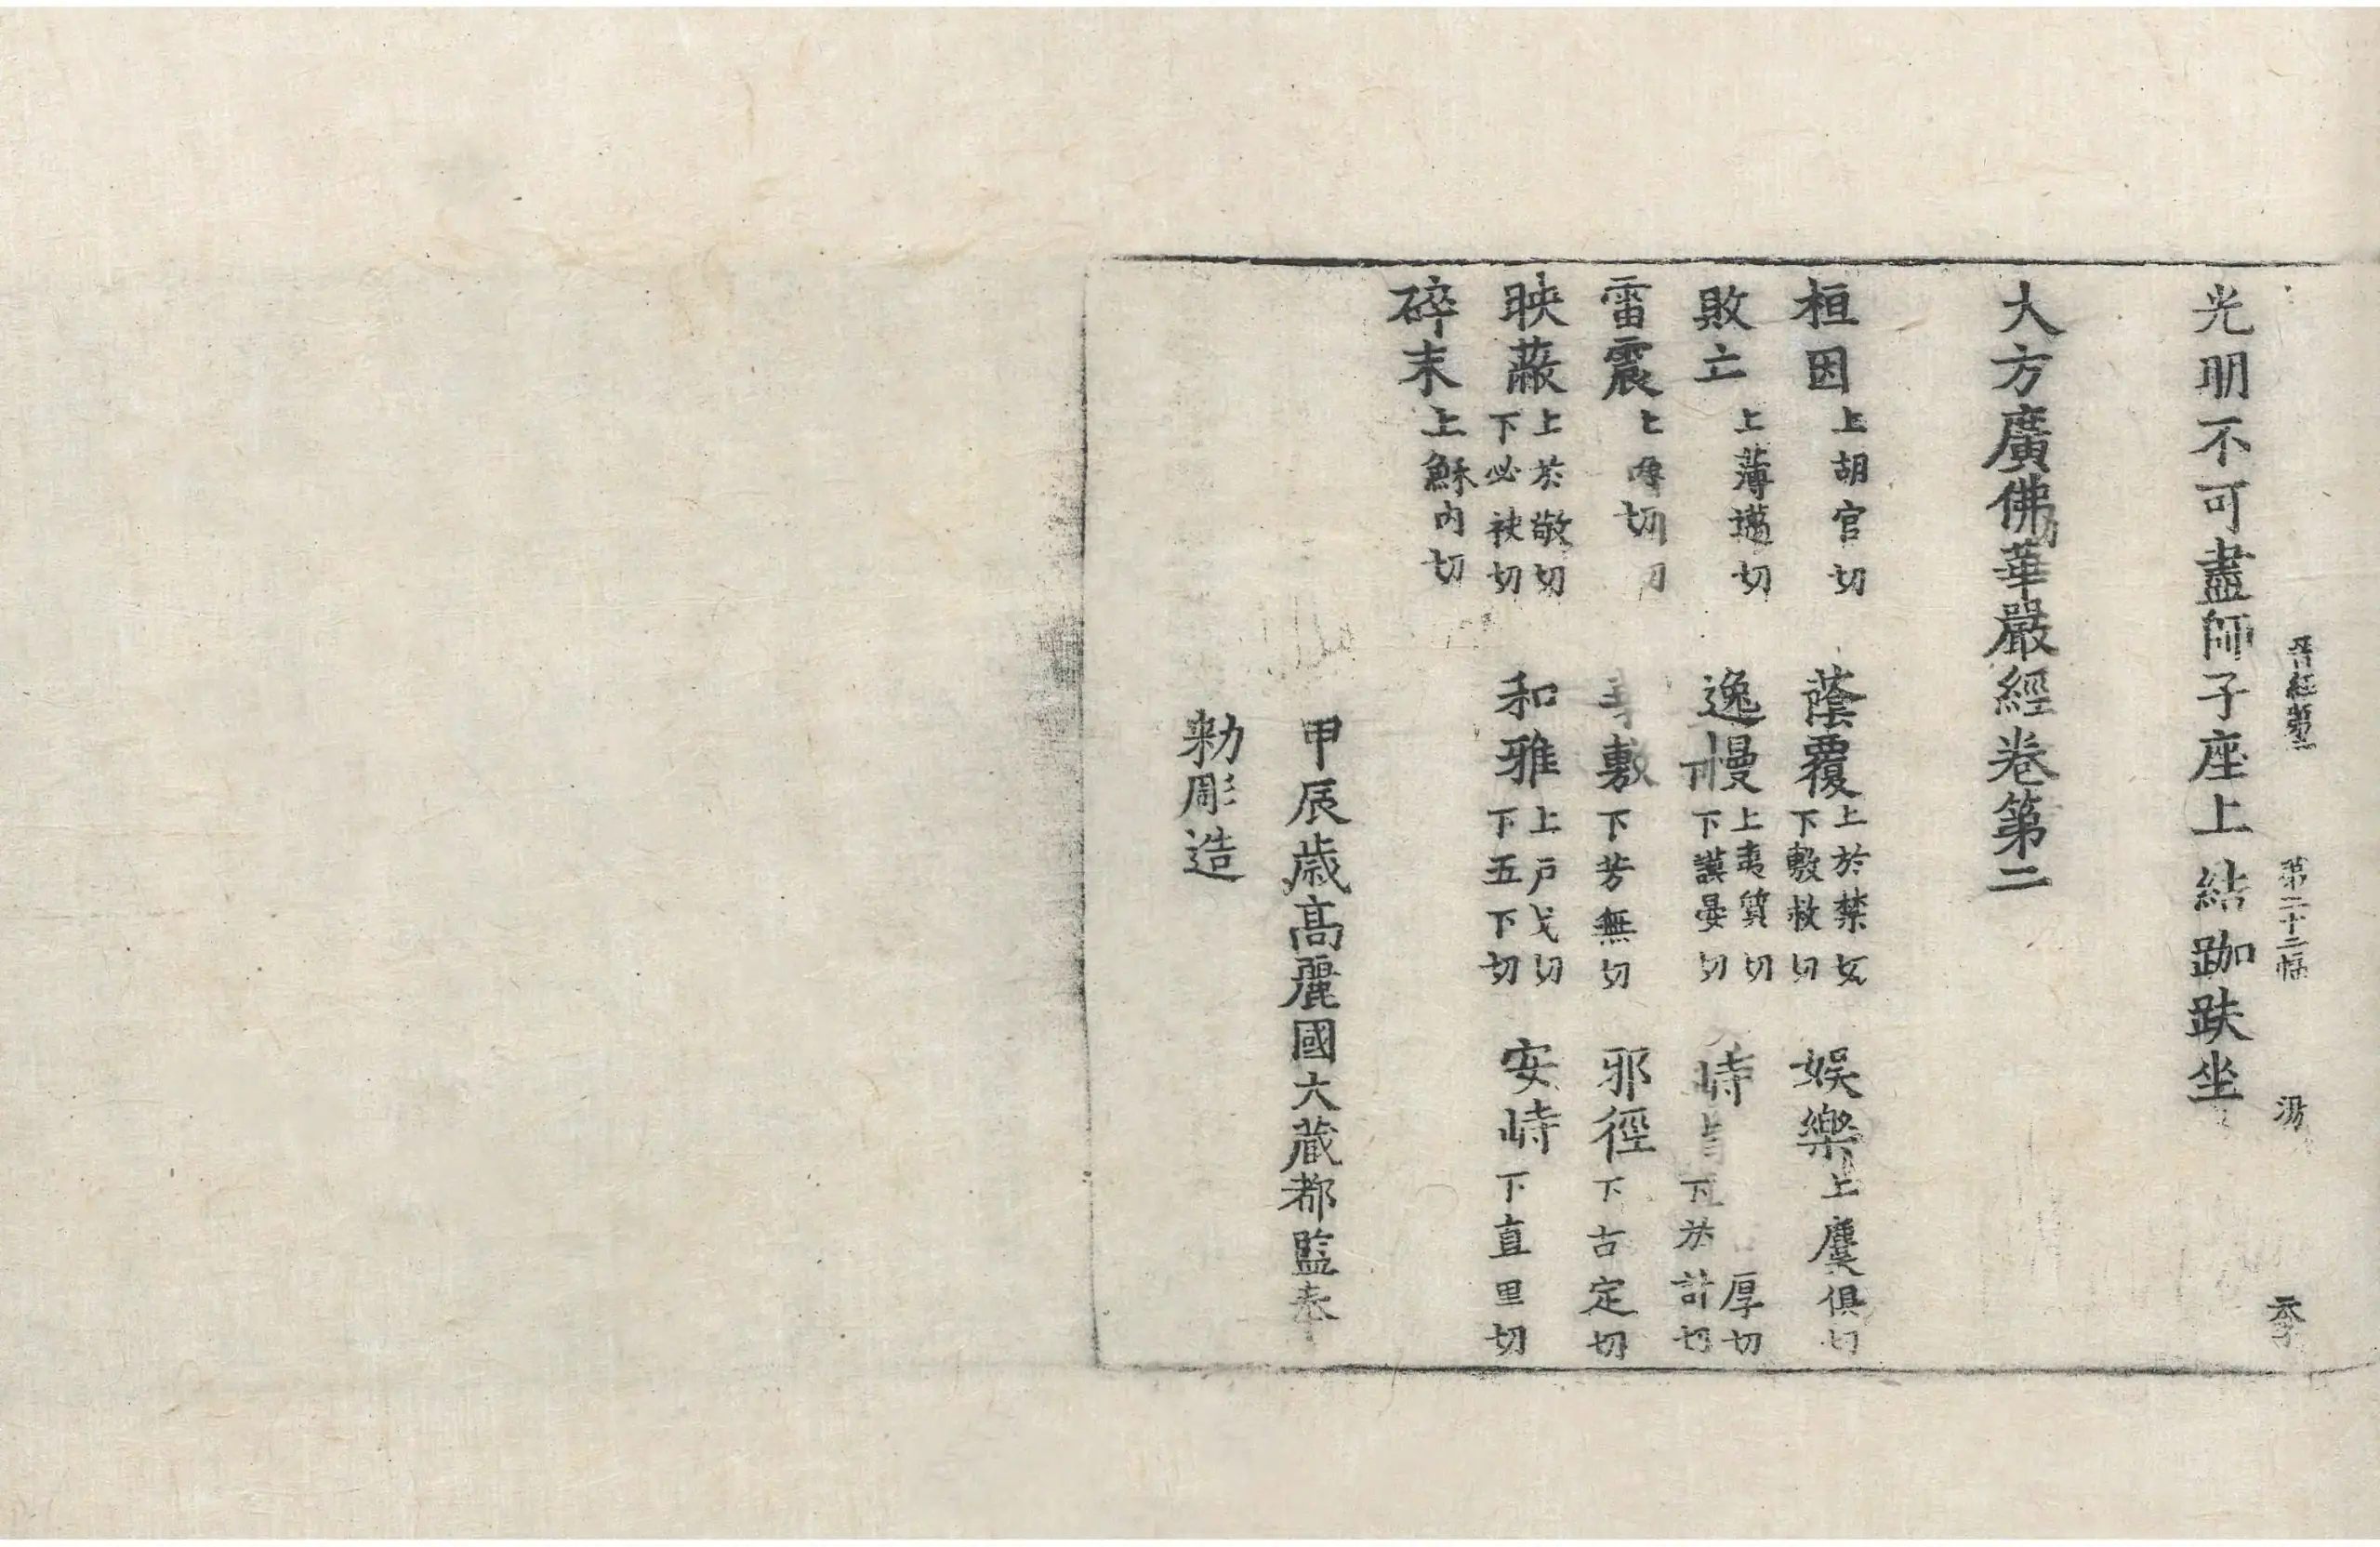 晋經第二 第二十二幅 湯 李
光明不可盡師子座上結跏趺坐
大方廣佛華嚴經卷第二
桓因上胡官切 蔭覆上於禁切下敷救切 娛樂上麌俱切
敗亡上薄邁切 逸慢上夷質切下謨晏切 厚切計切
雷震切 敷下芳無切 邪徑下古定切
映蔽上於敬切下必袂切 和雅上戶戈切下五下切 安峙下直里切
碎末上穌內切
甲辰歲高麗國大藏都監奉
勑彫造